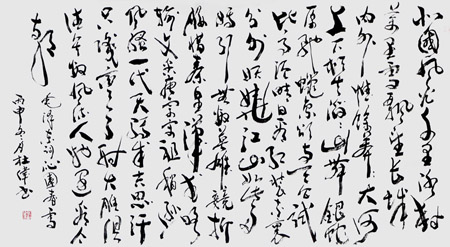 北國風光千里冰封
萬里雪飄望長城
內外惟餘莽莽大河
上下頓失滔滔山舞銀蛇
原馳蠟象欲與天公試
比高須晴日看紅裝素裹
分外妖嬈江山如此多
嬌引無數英雄競折
腰惜秦皇漢武略
輸文采唐宗宋祖稍遜
風騷一代天驕成吉思汗
只識彎弓射大雕俱
往矣數風流人物還看今
朝
毛澤東詞沁園春雪
丙申五月杜偉書